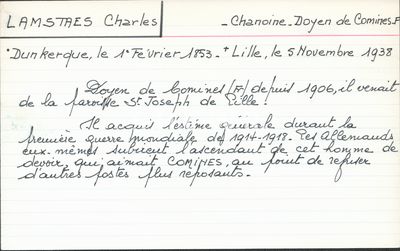 LAMSTAES Charles - Chanoine - Doyen de Comines. F
° Dunkerque, le 1° Février 1853. - + Lille, le 5 Novembre 1938
Doyen de Comines (F) depuis 1906, il venait
de la paroisse St Joseph de Lille.
Il acquis l'estime générale durant la
première guerre mondiale de 1914-1918. Les Allemands
eux-mêmes subirent l'ascendant de cet homme de
devoir, qui aimait COMINES, au point de refuser
d'autres postes plus reposants.